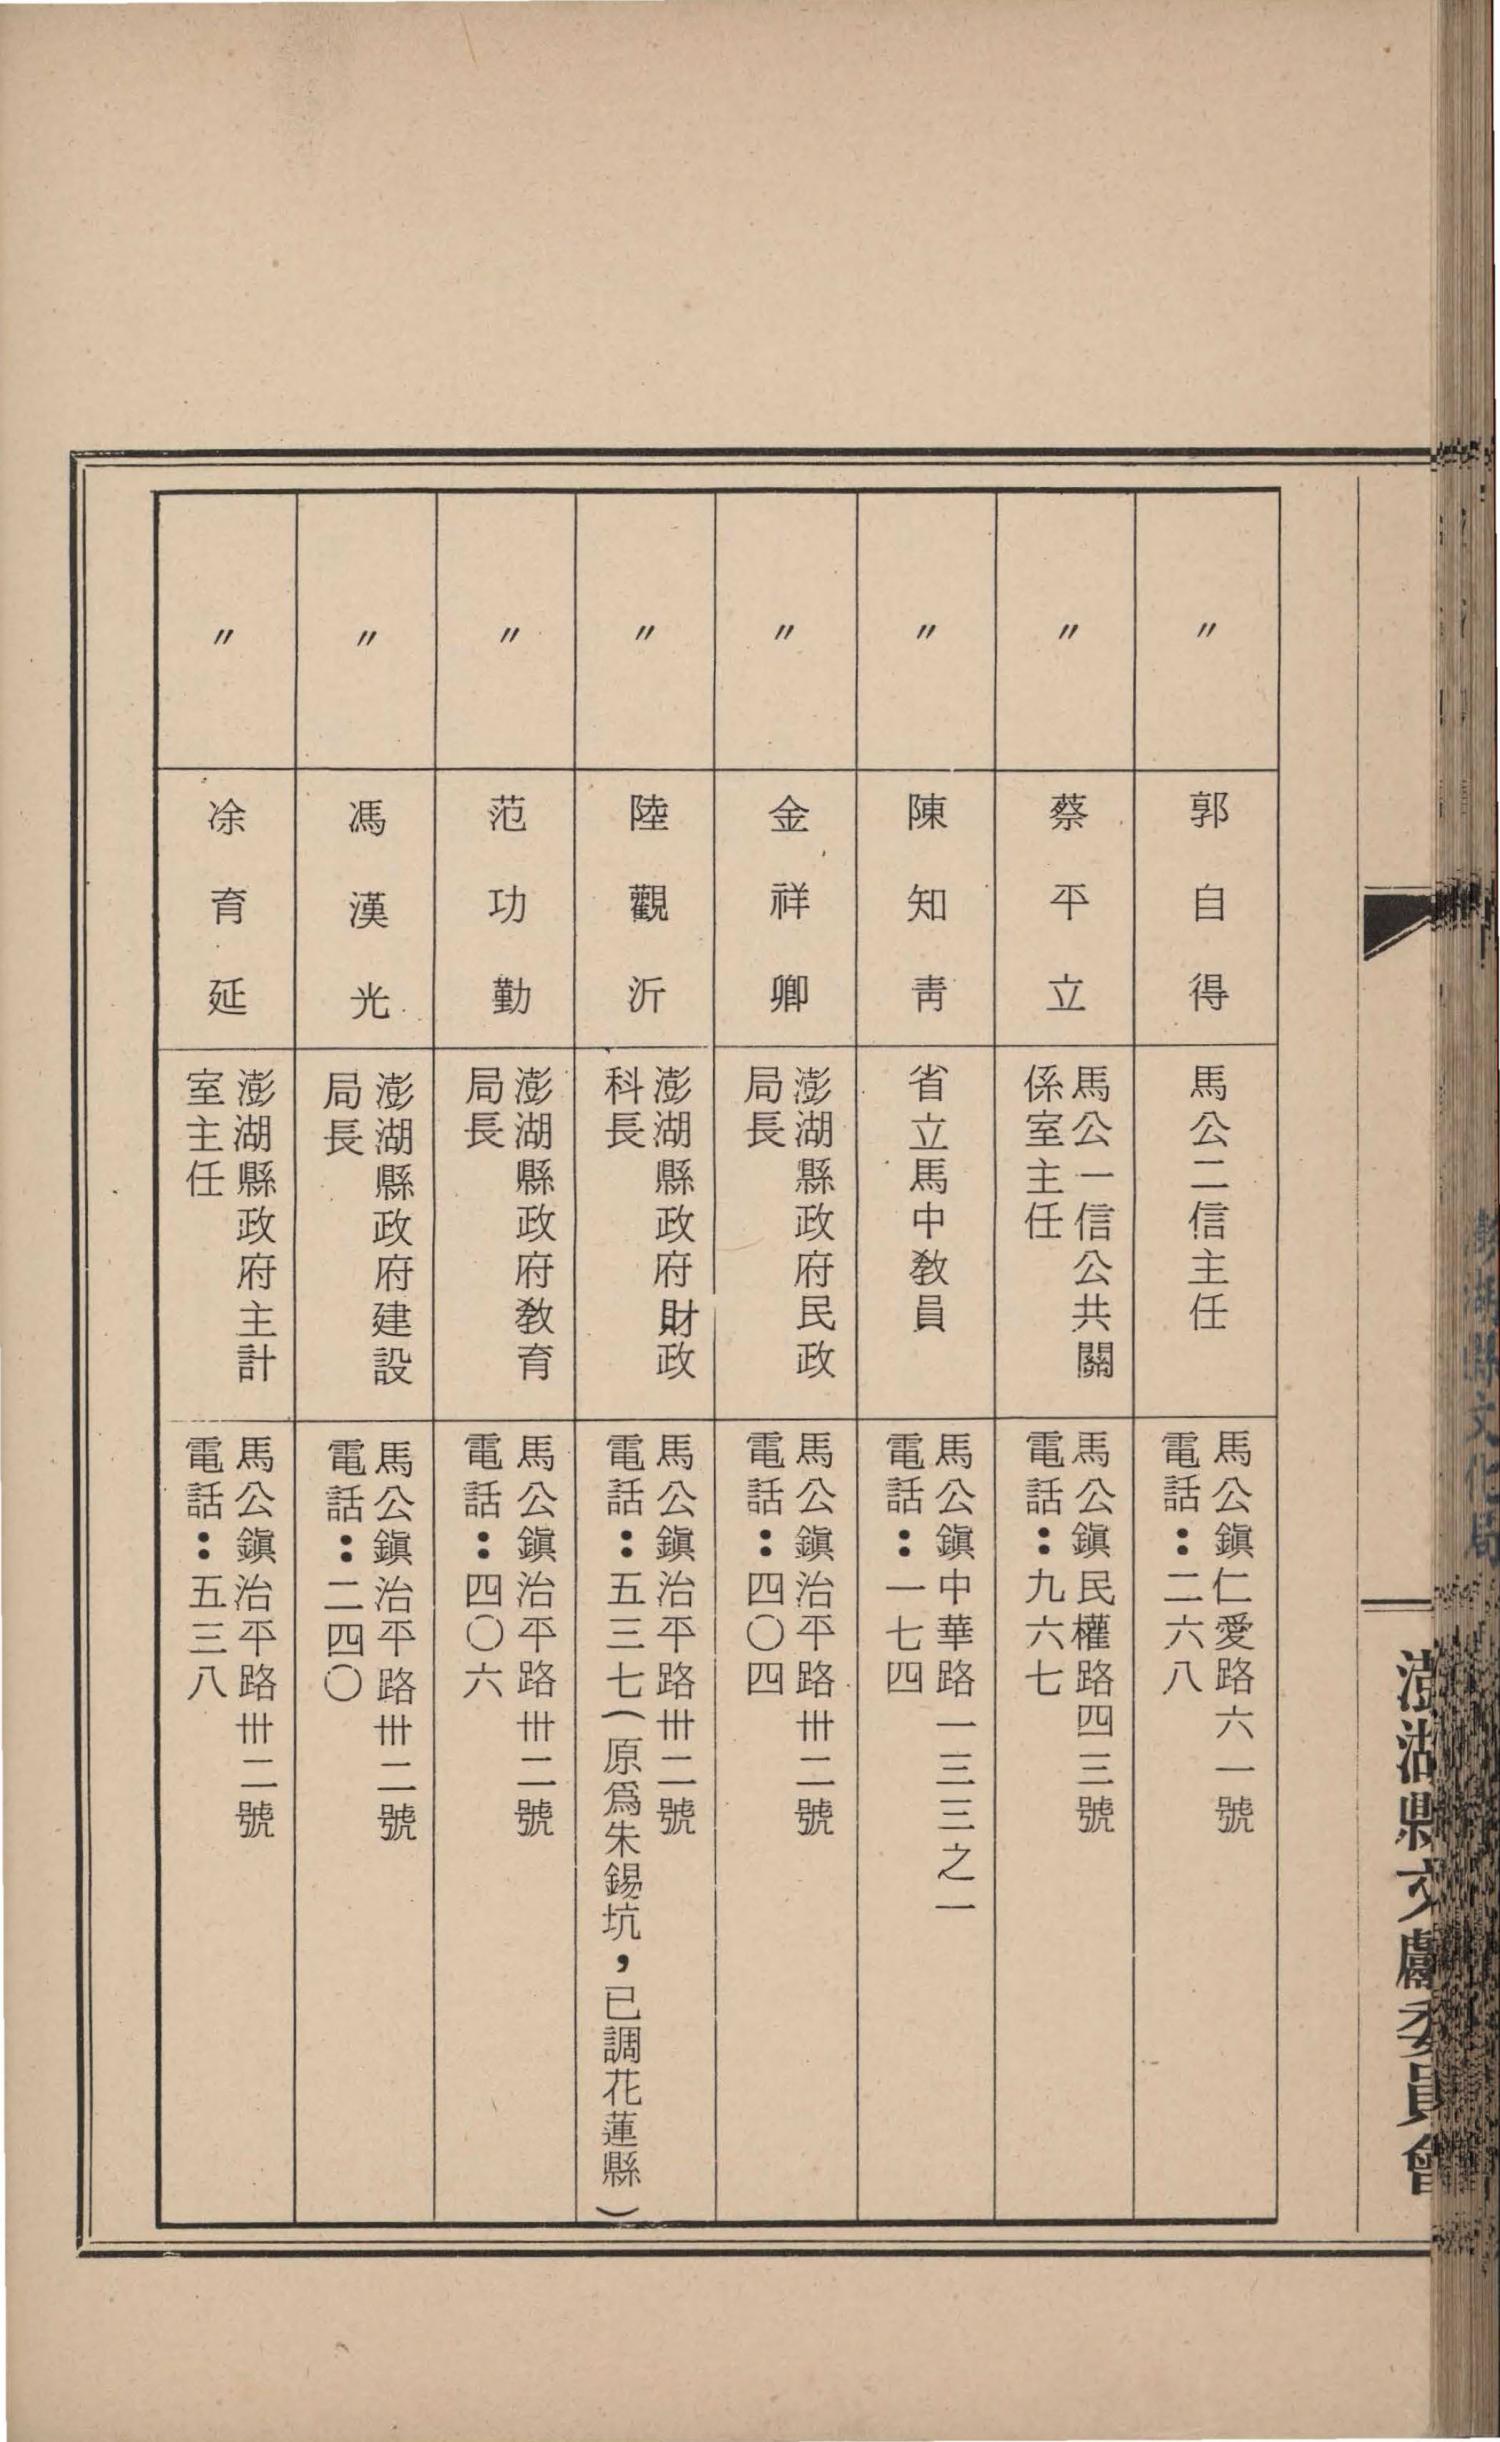 澎湖縣文獻委員會
澎湖縣文化局
〃
郭自得
馬公二信主任
馬公鎭仁愛路六一號
電話：二六八
〃
蔡平立
馬公一信公共關
係室主任
馬公鎭民權路四三號
電話：九六七
〃
陳知靑
省立馬中教員
馬公鎭中華路一三三之一
電話：一七四
〃
金祥卿
澎湖縣政府民政
局長
馬公鎭治平路卅二號
電話：四〇四
〃
陸觀沂
澎湖縣政府財政
科長
馬公鎭治平路卅二號
電話：五三七（原爲朱錫坑，已調花蓮縣）
〃
范功勤
澎湖縣政府教育
局長
馬公鎭治平路卅二號
電話：四〇六
〃
馮漢光
澎湖縣政府建設
局長
馬公鎭治平路卅二號
電話：二四〇
〃
凃育延
澎湖縣政府主計
室主任
馬公鎭治平路卅二號
電話：五三八